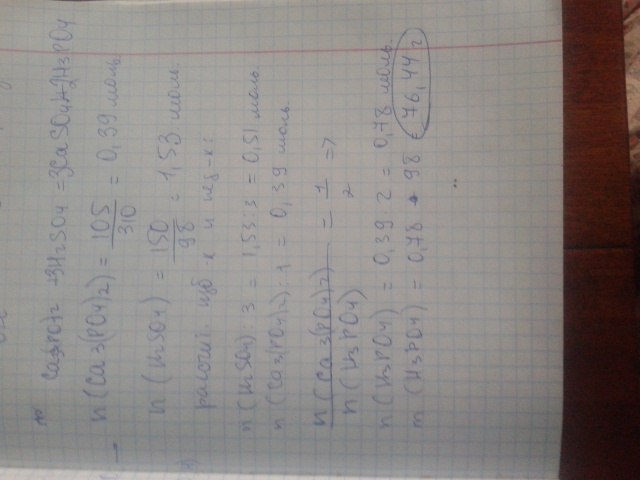 Ca3(PO4)2 + 3H2SO4 = 3CaSO4 + 2H3PO4
n (Ca3(PO4)2) = 105/310 = 0,39 моль.
n (H2SO4) = 150/98 = 1,53 моль.
расчёт изб-к и нед-к:
n (H2SO4) : 3 = 1,53 : 3 = 0,51 моль.
n (Ca3(PO4)2) : 1 = 0,39 моль.
n (Ca3(PO4)2)/n (H3PO4) = 1/2 =>
n (H3PO4) = 0,39 · 2 = 0,78 моль.
m (H3PO4) = 0,78 · 98 = 76,44 г